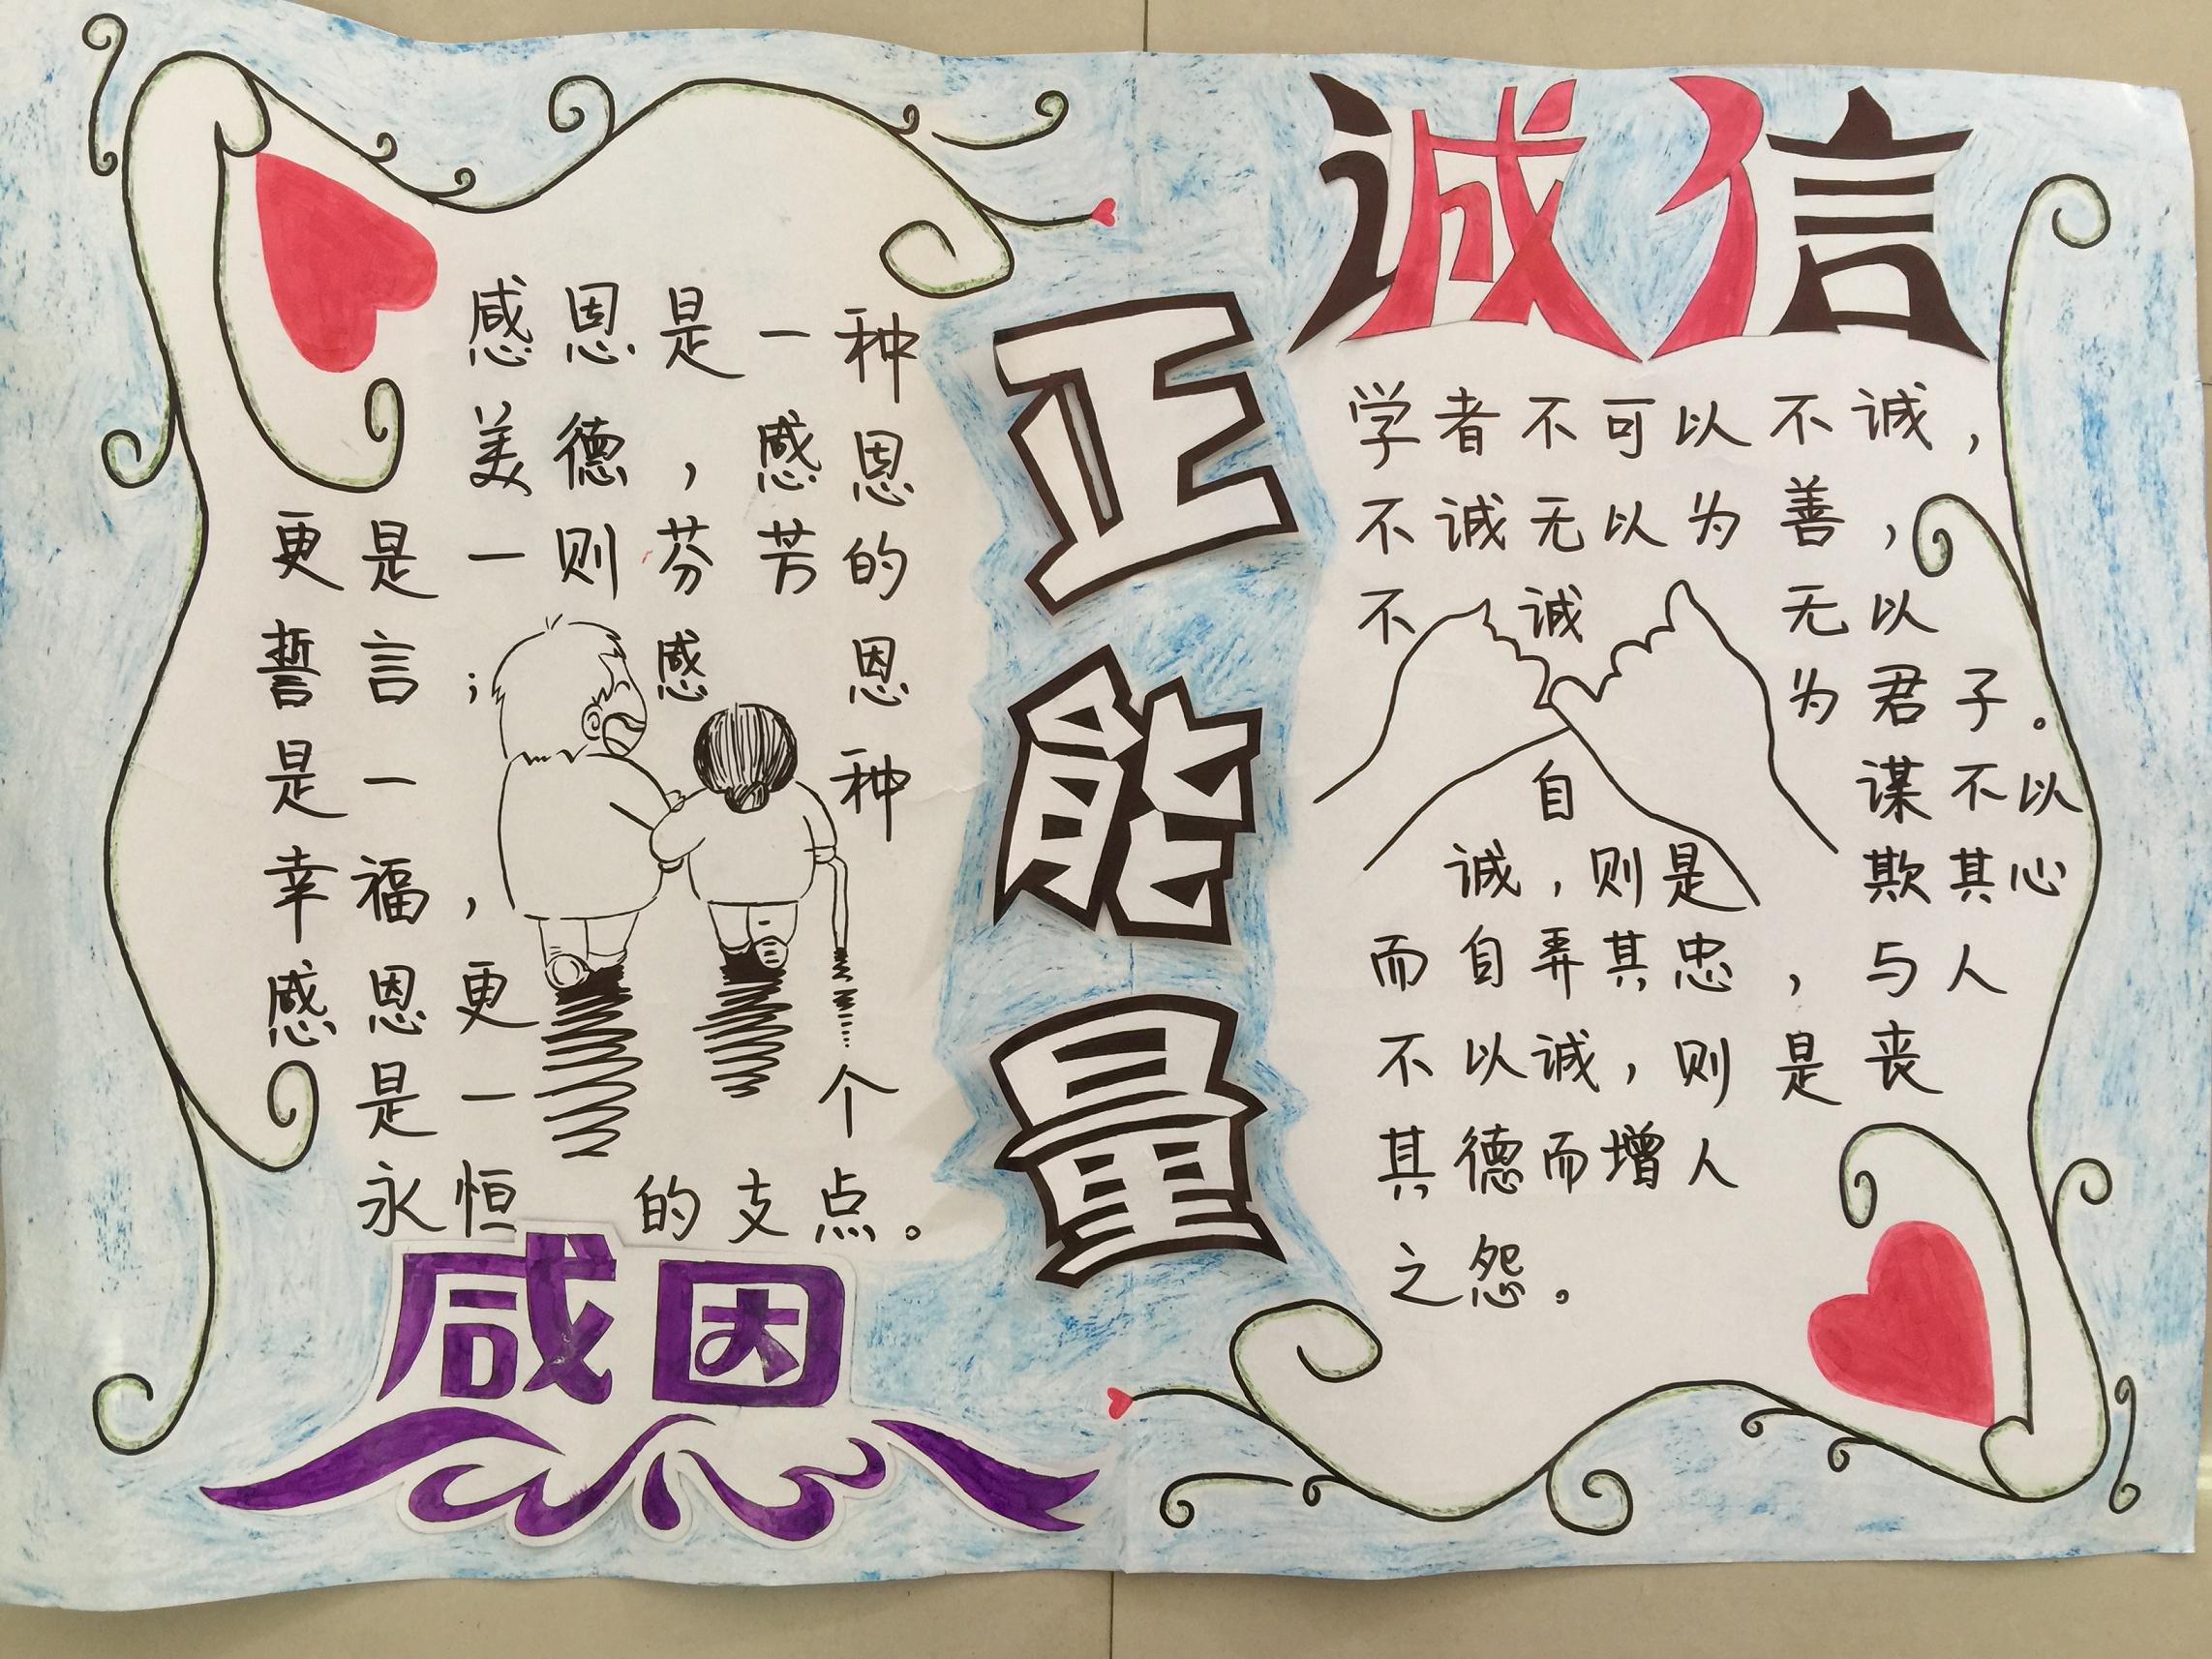 感恩是一种
美德，感恩
更是一则芬芳的
誓言；感恩
是一种
幸福，
感恩更
是一个
永恒的支点。
感恩
正能量
诚信
学者不可以不诚，
不诚无以为善，
不诚无以
为君子。
自谋不以
诚，则是欺其心
而自弄其忠，与人
不以诚，则是丧
其德而增人
之怨。